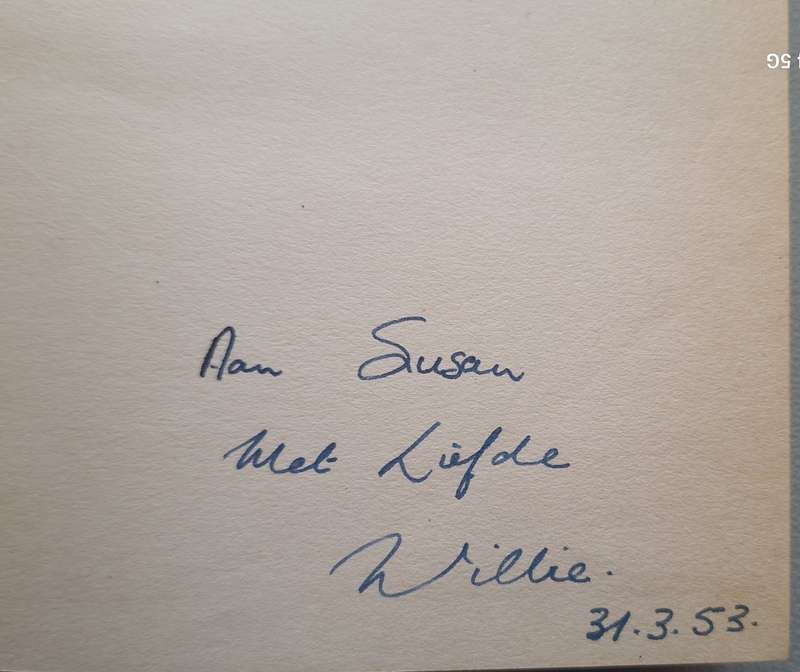 Aan Susan
Met Liefde
Willie.
31.3.53.
5G